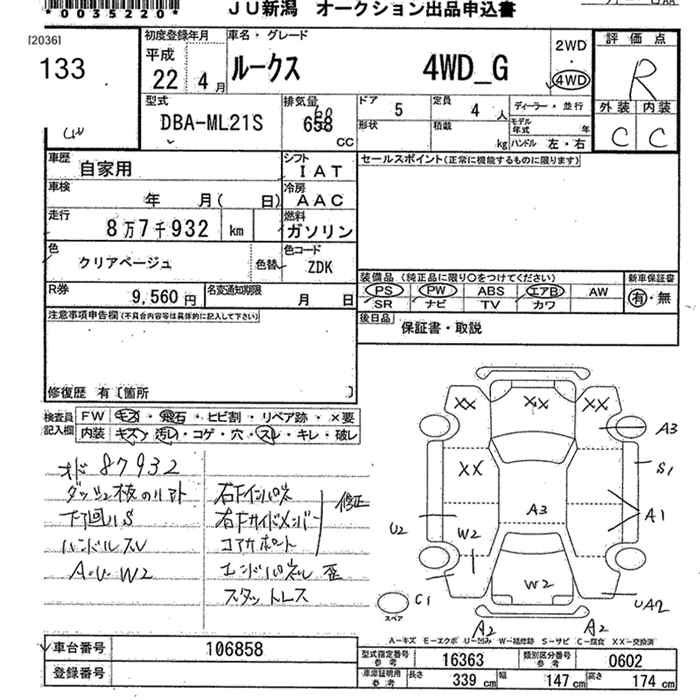 *0035220*
JU新潟 オークション出品申込書
I20361
133
初度登録年月
平成
22 年 4 月
車名・グレード
ルークス 4WD_G
2WD
4WD
評価点
R
外装 内装
C C
型式
DBA-ML21S
排気量
658 CC
ドア 5
定員 4 人
形状
積載 kg
ディーラー・並行
モデル年式 年
ハンドル 左・右
車歴
自家用
シフト
IAT
セールスポイント(正常に機能するものに限ります)
車検
年 月( 日)
冷房
AAC
走行
8万7千932 km
燃料
ガソリン
色
クリアベージュ
色替
色コード
ZDK
装備品(純正品に限り○をつけてください)
PS PW ABS エアB AW
SR ナビ TV カワ
新車保証書
有・無
R券
9,560 円
名変通知期限
月 日
後日品
保証書・取説
注意事項申告欄(不具合内容等は具体的に記入して下さい)
修復歴 有〔箇所 〕
検査員記入欄
FW キズ・飛石・ヒビ割・リペア跡・×要
内装 キズ・汚レ・コゲ・穴・スレ・キレ・破レ
オド 87932
ダッシュ板のリアト
下回りS
ハンドルスレ
A・U・W2
右Fインパネ
右Fサイドメンバー
コアサポート
修正
エンドパネル 歪
スタットレス
XX XX XX
A3
XX
S1
A3
A1
U2
W2
W2
C1
UA2
スペア
A2 A2
A-キズ E-エクボ U-凹み W-補修跡 S-サビ C-腐食 XX-交換済
車台番号 106858
登録番号
型式指定番号 参考 16363
類別区分番号 参考 0602
車庫証明用 参考
長さ 339 cm
幅 147 cm
高さ 174 cm